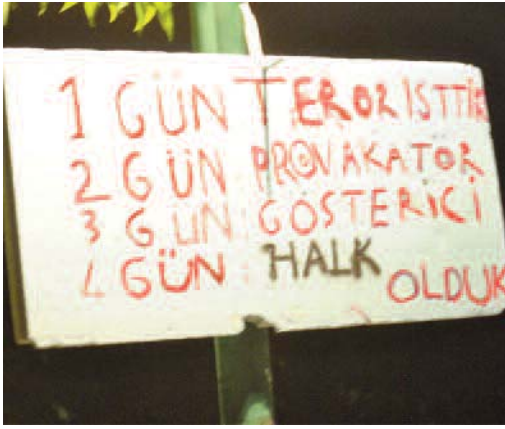 1 GÜN TERORİSTTİK
2 GÜN PROVAKATÖR
3 GÜN: GÖSTERİCİ
4 GÜN: HALK
OLDUK